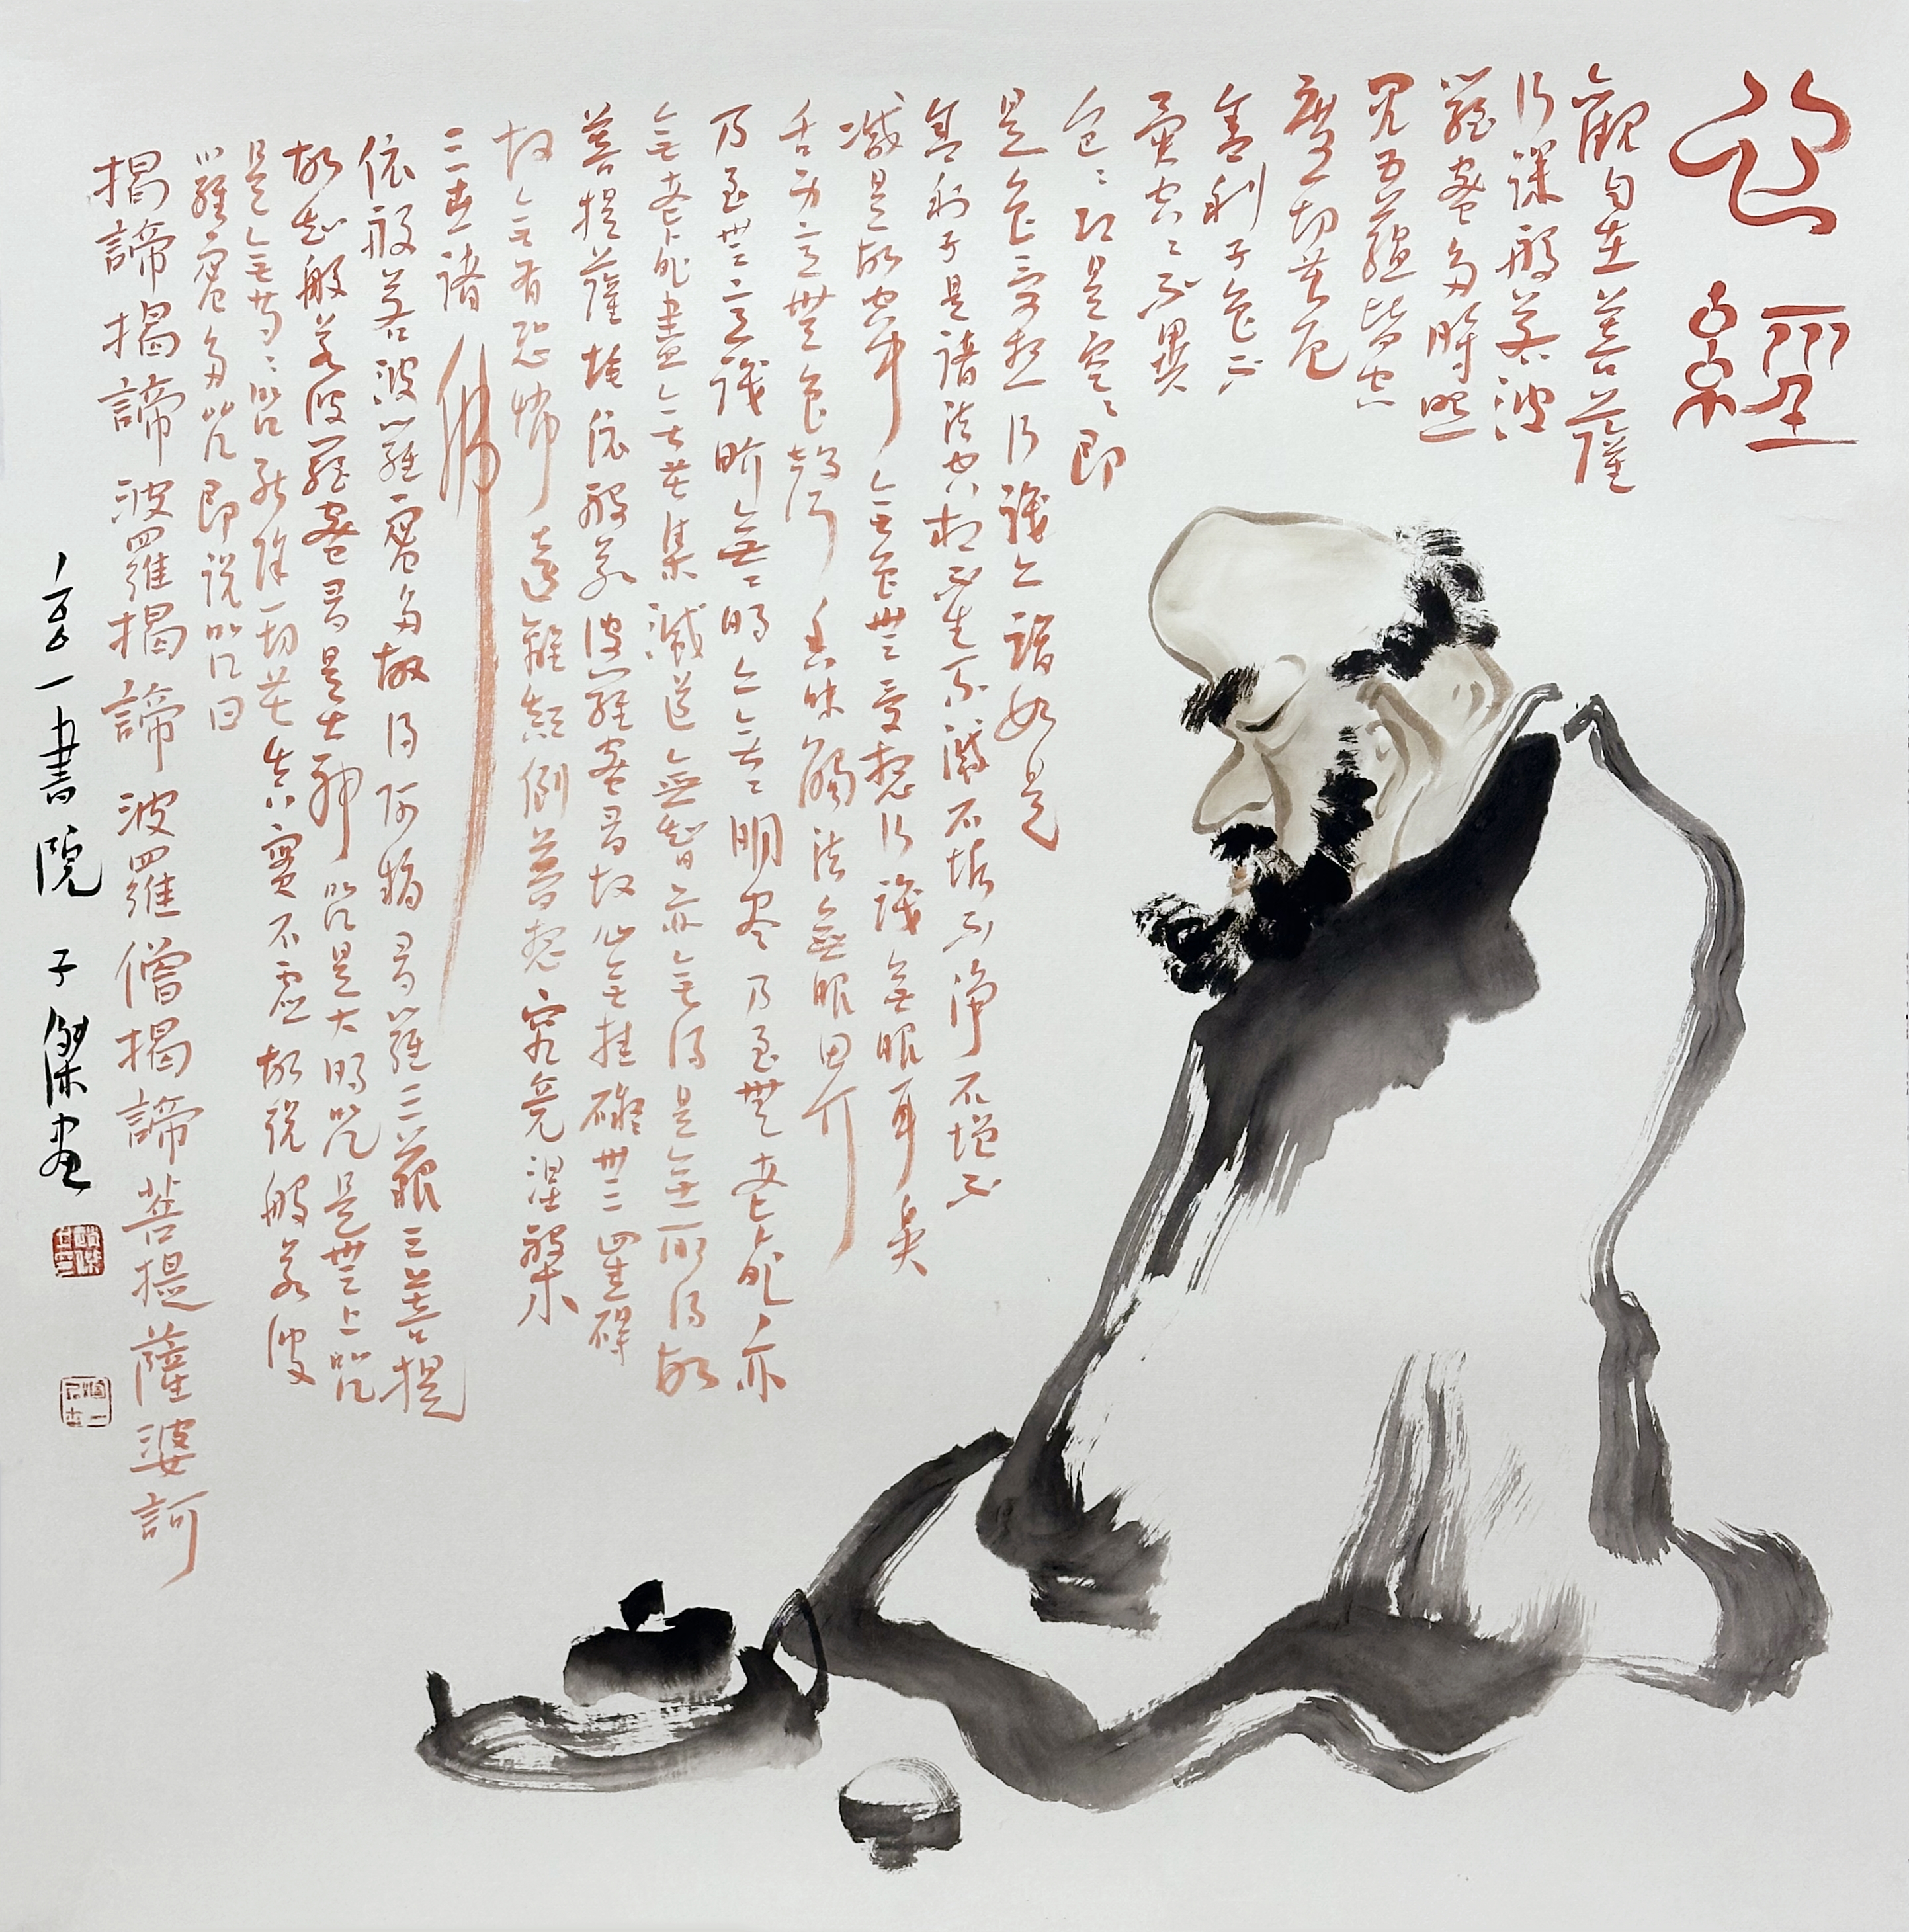 心經
觀自在菩薩
行深般若波
羅蜜多時照
見五蘊皆空
度一切苦厄
舍利子色不
異空〻不異
色〻即是空〻即
是色受想行識亦複如是
舍利子是諸法空相不生不滅不垢不淨不增不
減是故空中無色無受想行識無眼耳鼻
舌身意無色聲香味觸法無眼界
乃至無意識界無〻明亦無〻明盡乃至無老死亦
無老死盡無苦集滅道無智亦無得是無所得故
菩提薩埵依般若波羅蜜多故心無挂礙無罣碍
故無有恐怖遠離顛倒夢想究竟涅槃
三世諸佛
依般若波羅蜜多故得阿耨多羅三藐三菩提
故知般若波羅蜜多是大神咒是大明咒是無上咒
是無等〻咒能除一切苦真實不虛故說般若波
羅蜜多咒即說咒曰
揭諦揭諦波羅揭諦波羅僧揭諦菩提薩婆訶
一書院 子傑畫